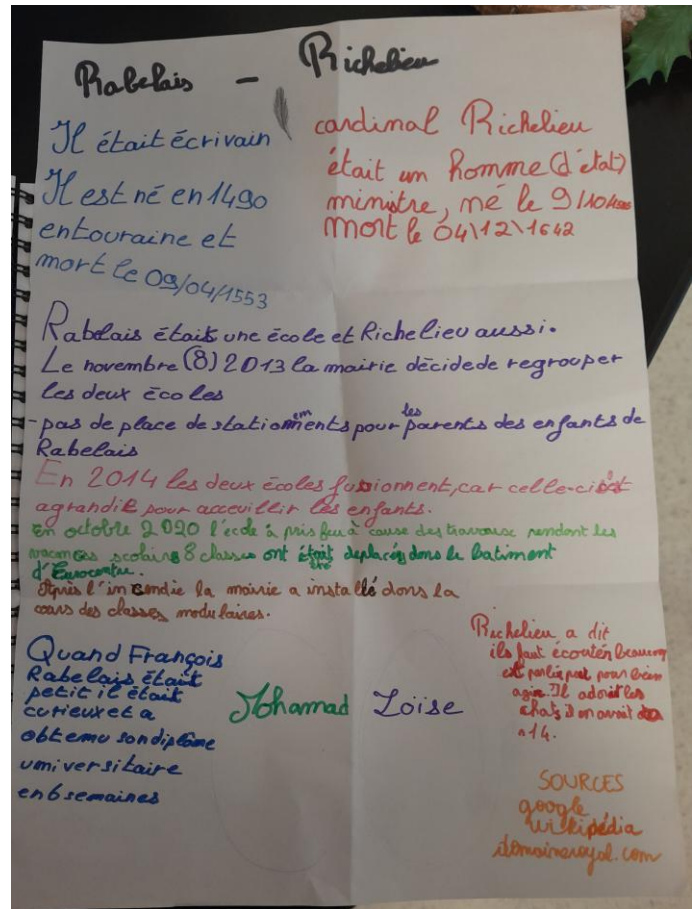 Rabelais - Richelieu
Il était écrivain
Il est né en 1490
entouraine et
mort le 09/04/1553
cardinal Richelieu
était un homme (d'état)
ministre, né le 9/10/
mort le 04\12\1642
Rabelais étais une école et Richelieu aussi.
Le novembre (8) 2013 la mairie décide de regrouper
les deux écoles
- pas de place de stationnements pour les parents des enfants de
Rabelais
En 2014 les deux écoles fusionnent, car celle-ci
agrandit pour acceuillir les enfants.
En octobre 2020 l'école à pris feu à cause des travaux pendant les
vacances scolaires 8 classes ont été déplacés dans le batiment
d'Eurocentre.
Après l'incendie la mairie a installé dans la
cours des classes modulaires.
Quand François
Rabelais était
petit il était
curieux et a
obtenu son diplôme
universitaire
en 6 semaines
Mohamad Loïse
Richelieu a dit
ils faut écouter beaucoup
et parlé peut pour bien
agir. Il adorait les
chats il en avait
14.
SOURCES
google
wikipédia
domaineroyal.com